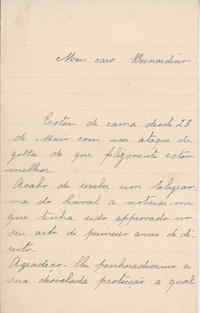 Meu caro Bernardino
Estou de cama desde 28
de Maio com um ataque de
gotta de que felizmente estou
melhor.
Acabo de receber um telegram
ma do a noticiar-me
que tinha sido approvado no
seu acto de primeiro anno de di
reito.
Agradeço-lhe penhoradissimo a
sua obsequiada protecção a qual